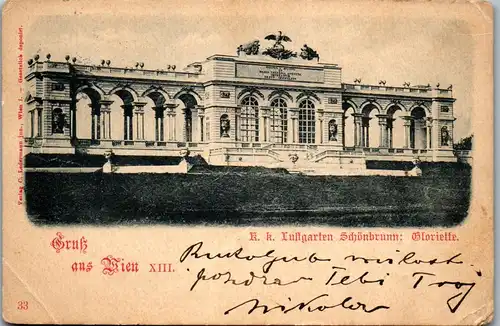 Verlag C. Ledermann jun. Wien I. – Gesetzlich deponirt.
K. k. Lustgarten Schönbrunn: Gloriette.
Gruß
aus Wien XIII.
pozdrav Tebi Tvoj
Nikola
33